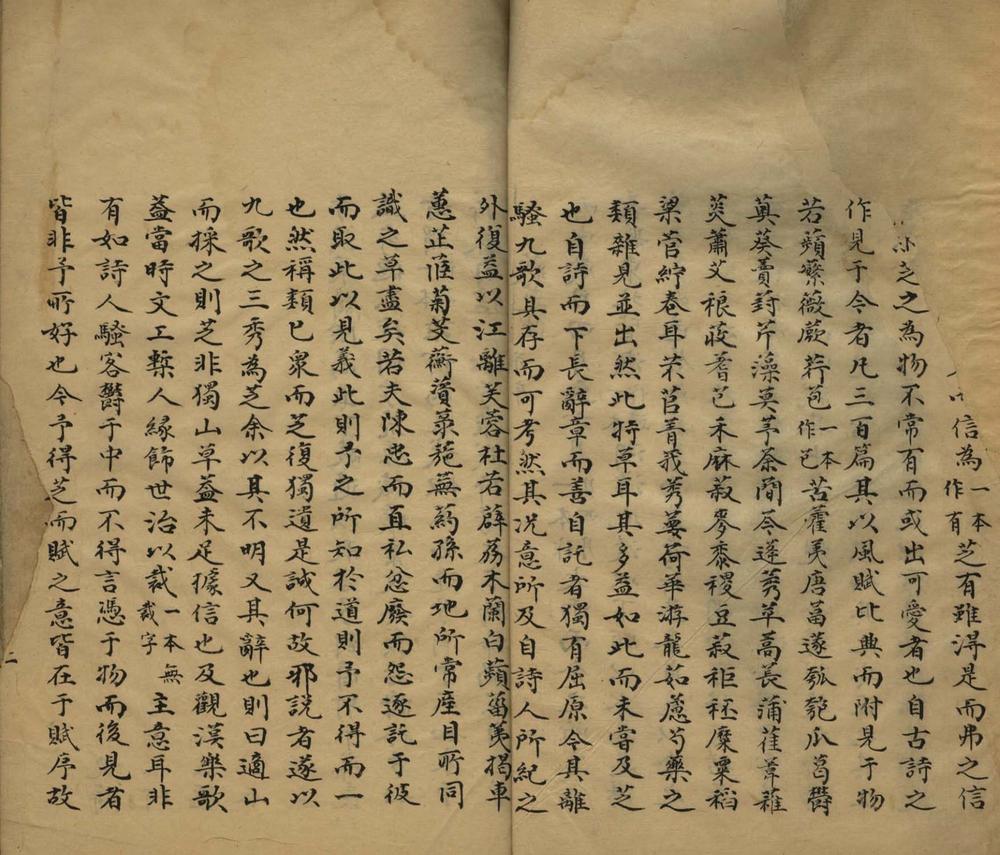 信為一本作有芝有雖得是而弗之信
芝之為物不常有而或出可愛者也自古詩之
作見于今者凡三百篇其以風賦比興而附見于物
若蘋蘩薇蕨荇苞一本作芑苦藿荑唐葍蓫瓠匏瓜葛鬱
薁葵蕢葑芹藻莫芧荼蕑苓蓬莠苹蒿萇蒲萑葦蓷
菼蕭艾稂莪蓍芑禾麻菽麥黍稷豆菽秬秠糜粟稻
粱菅紵卷耳芣苢菁莪莠蔞荷華游龍茹藘芍藥之
類雜見並出然此特草耳其多益如此而未嘗及芝
也自詩而下長辭章而善自託者獨有屈原今其離
騷九歌具存而可考然其況意所及自詩人所紀之
外復益以江離芙蓉杜若薜荔木蘭白蘋菑荑揭車
蕙芷菰菊芰蘅薋菉葹蕪葯蓀而地所常産目所同
識之草盡矣若夫陳忠而直私忿廢而怨逐託于彼
而取此以見義此則予之所知於道則予不得而一
也然稱類已衆而芝復獨遺是誠何故邪説者遂以
九歌之三秀為芝余以其不明又其辭也則曰適山
而採之則芝非獨山草蓋未足據信也及觀漢樂歌
蓋當時文工槩人緣飾世治以裁一本無裁字主意耳非
有如詩人騷客鬱于中而不得言憑于物而後見者
皆非予所好也今予得芝而賦之意皆在于賦序故
二